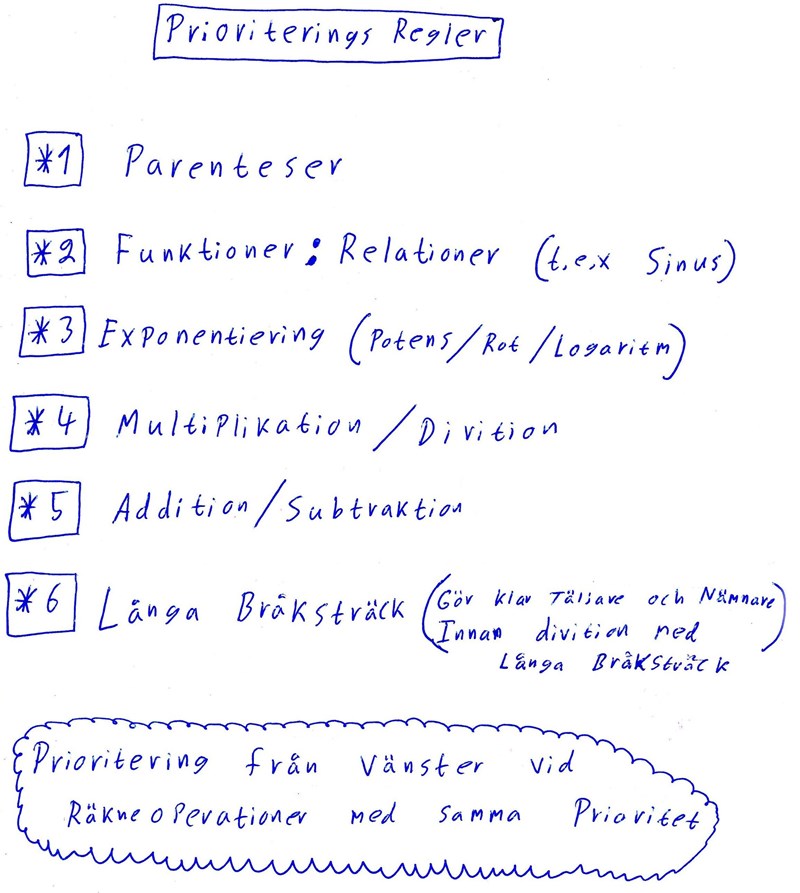 Prioriterings Regler
*1 Parenteser
*2 Funktioner: Relationer (t.e.x Sinus)
*3 Exponentiering (Potens/Rot/Logaritm)
*4 Multiplikation/Divition
*5 Addition/Subtraktion
*6 Långa Bråksträck (Gör klar Täljare och Nämnare
Innan divition med
Långa Bråksträck)
Prioritering från Vänster vid
Räkneoperationer med samma Prioritet